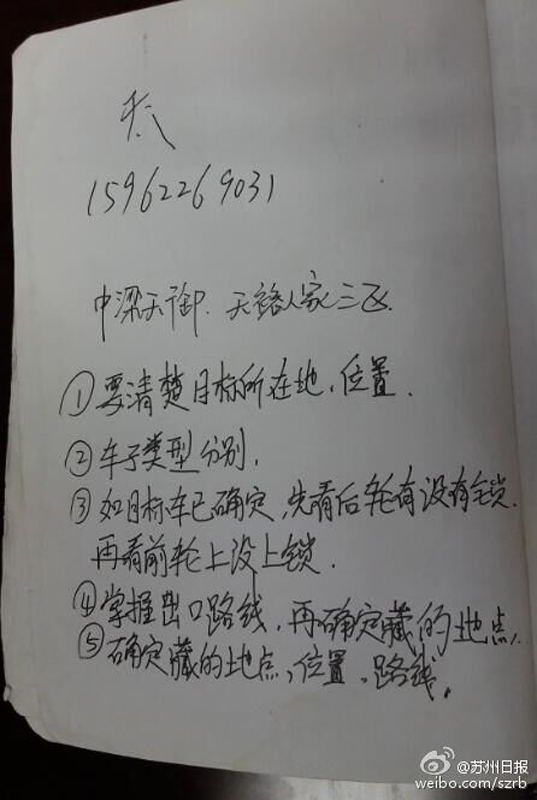 15962269031
中梁天御.天裕人家三区.
①要清楚目标所在地,位置.
②车子类型分别,
③如目标车已确定,先看后轮有没有锁.
再看前轮上没上锁.
④掌握出口路线,再确定藏的地点.
⑤确定藏的地点,位置,路线.
@苏州日报
weibo.com/szrb